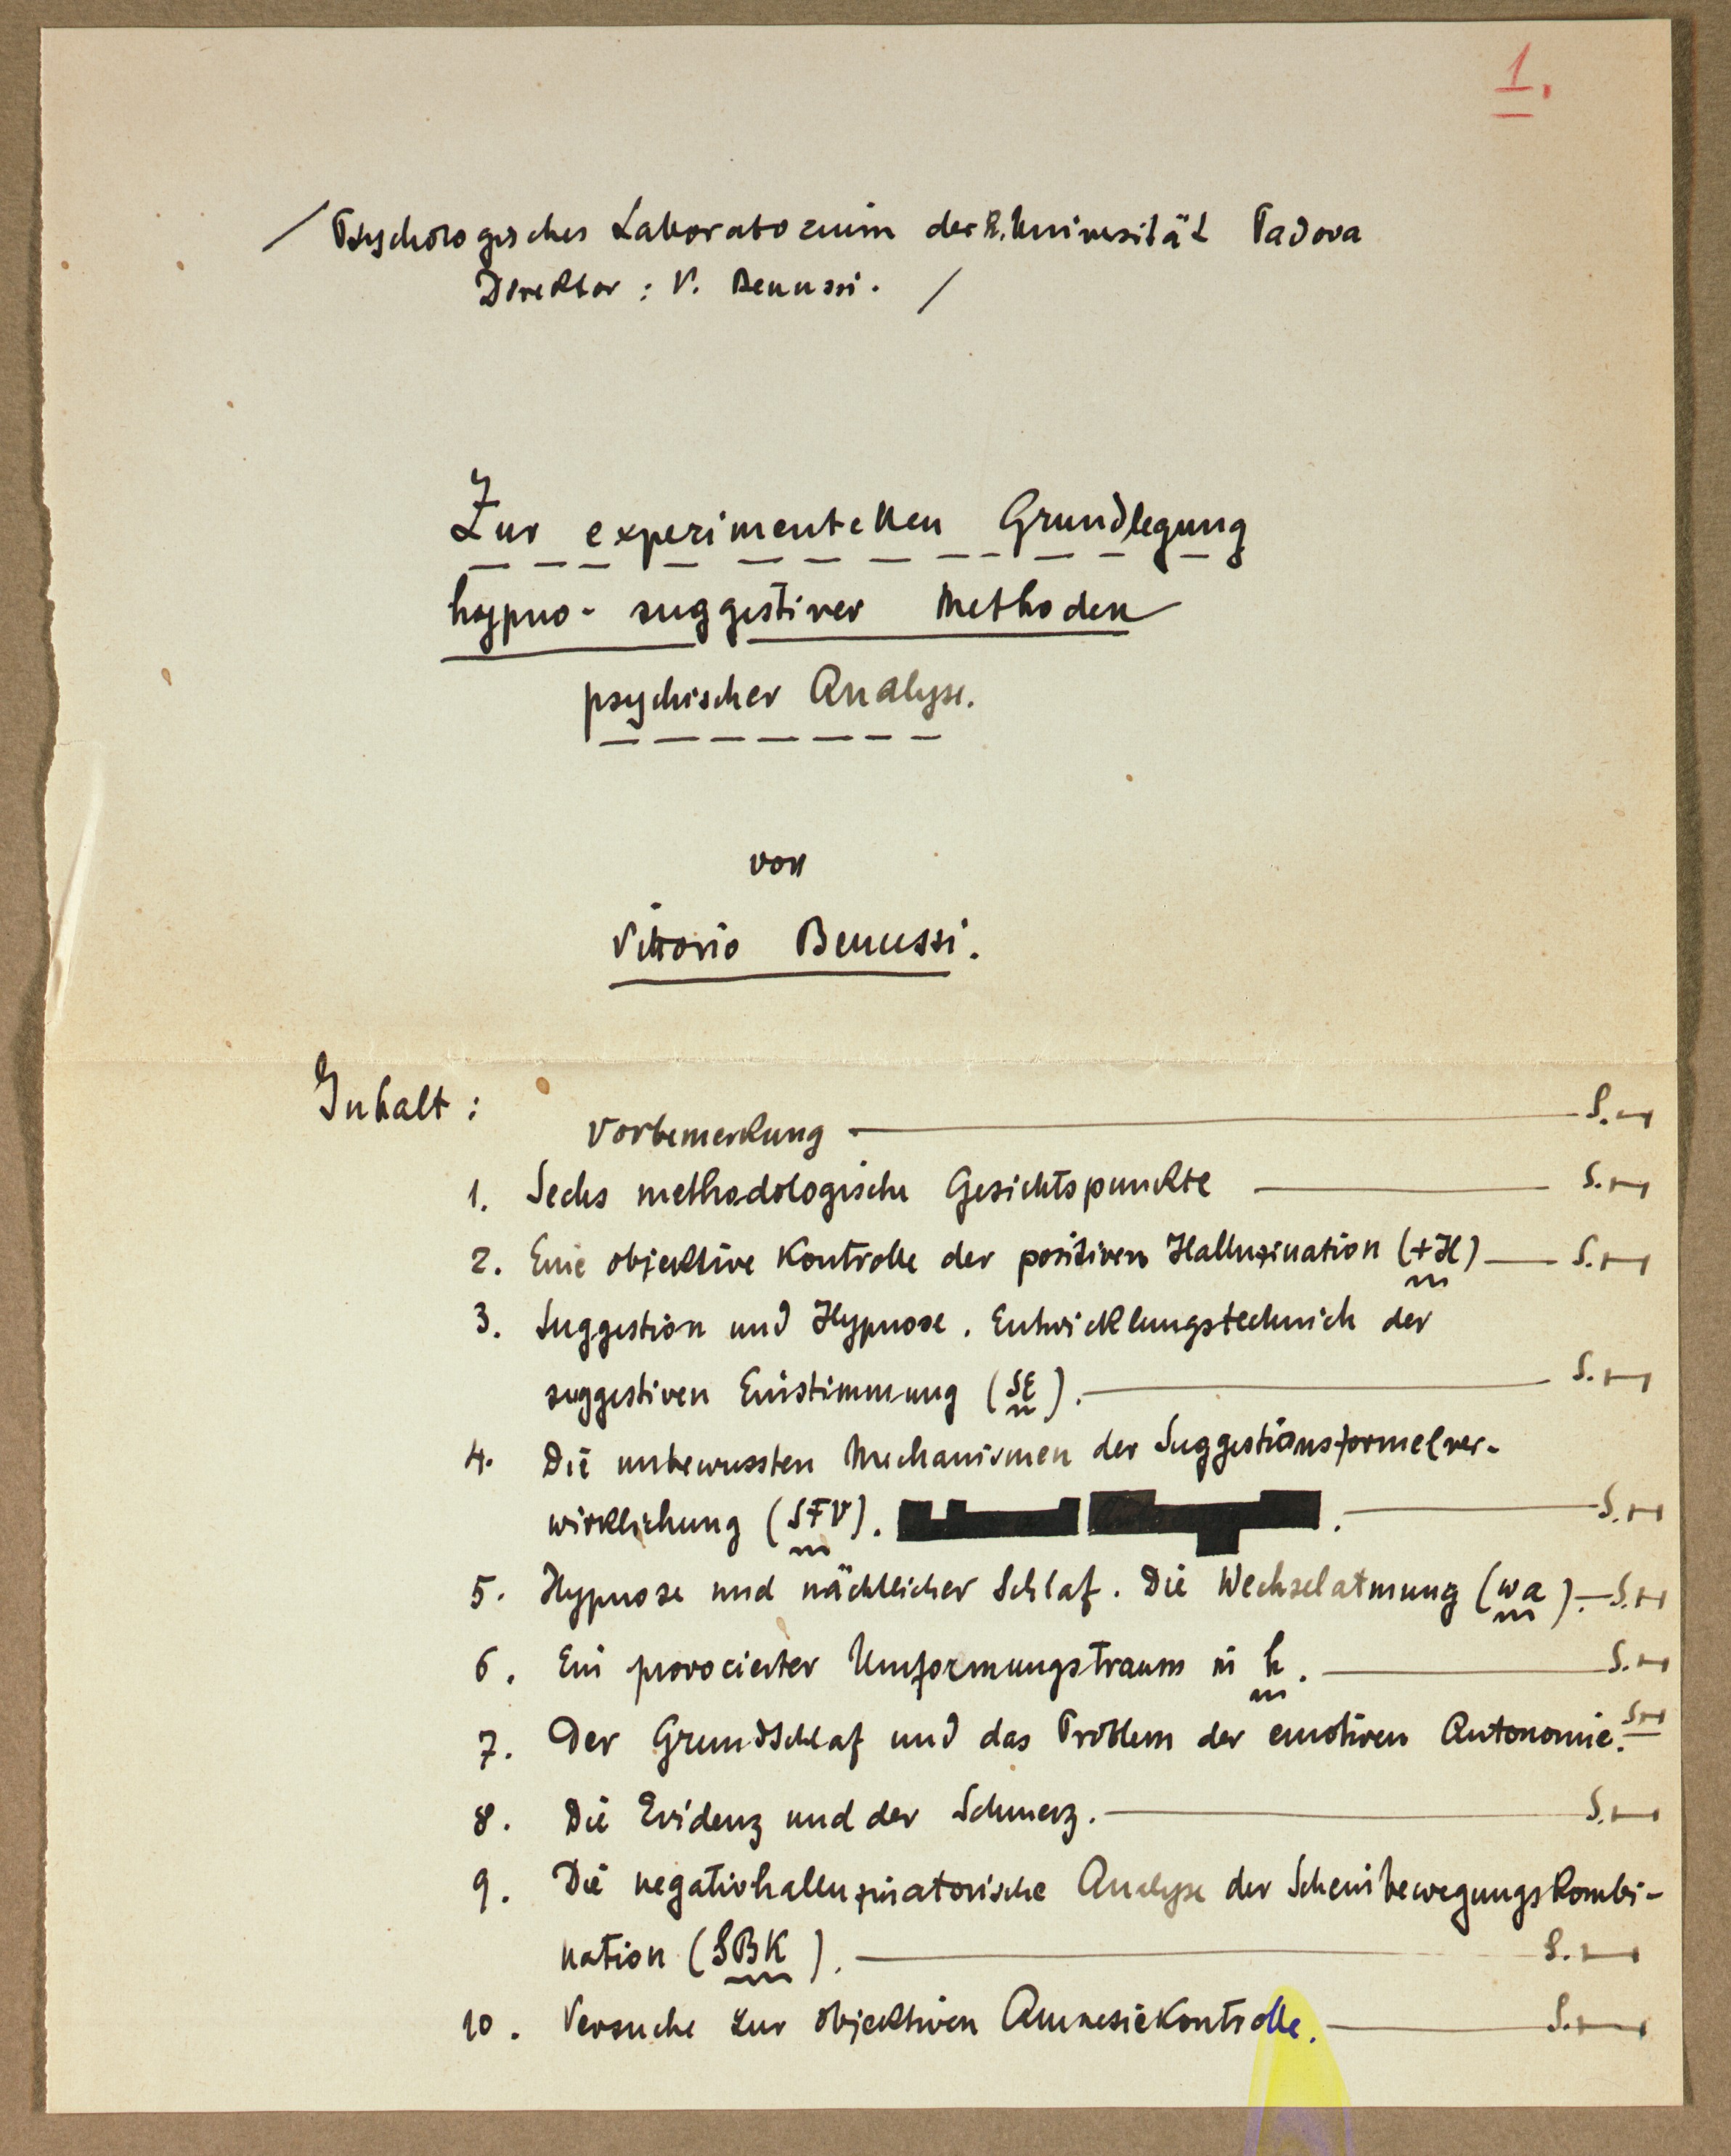 1.
/ Psychologisches Laboratorium der k. Universität Padova
Direktor : V. Benussi. /
Zur experimentellen Grundlegung
hypno- suggestiver Methoden
psychischer Analyse.
von
Vittorio Benussi.
Inhalt :
Vorbemerkung — S.
1. Sechs methodologische Gesichtspunkte — S.
2. Eine objektive Kontrolle der positiven Halluzination (+H) — S.
3. Suggestion und Hypnose. Entwicklungstechnick der
suggestiven Einstimmung (SE). — S.
4. Die unbewussten Mechanismen der Suggestionsformelver-
wirklichung (SFV). . — S.
5. Hypnose und nächtlicher Schlaf. Die Wechselatmung (wa). — S.
6. Ein provocierter Umformungstraum in h. — S.
7. Der Grundschlaf und das Problem der emotiven Autonomie. S.
8. Die Evidenz und der Schmerz. — S.
9. Die negativhalluzinatorische Analyse der Scheinbewegungskombi-
nation (SBK). — S.
10. Versuche zur objektiven Amnesiekontrolle. — S.